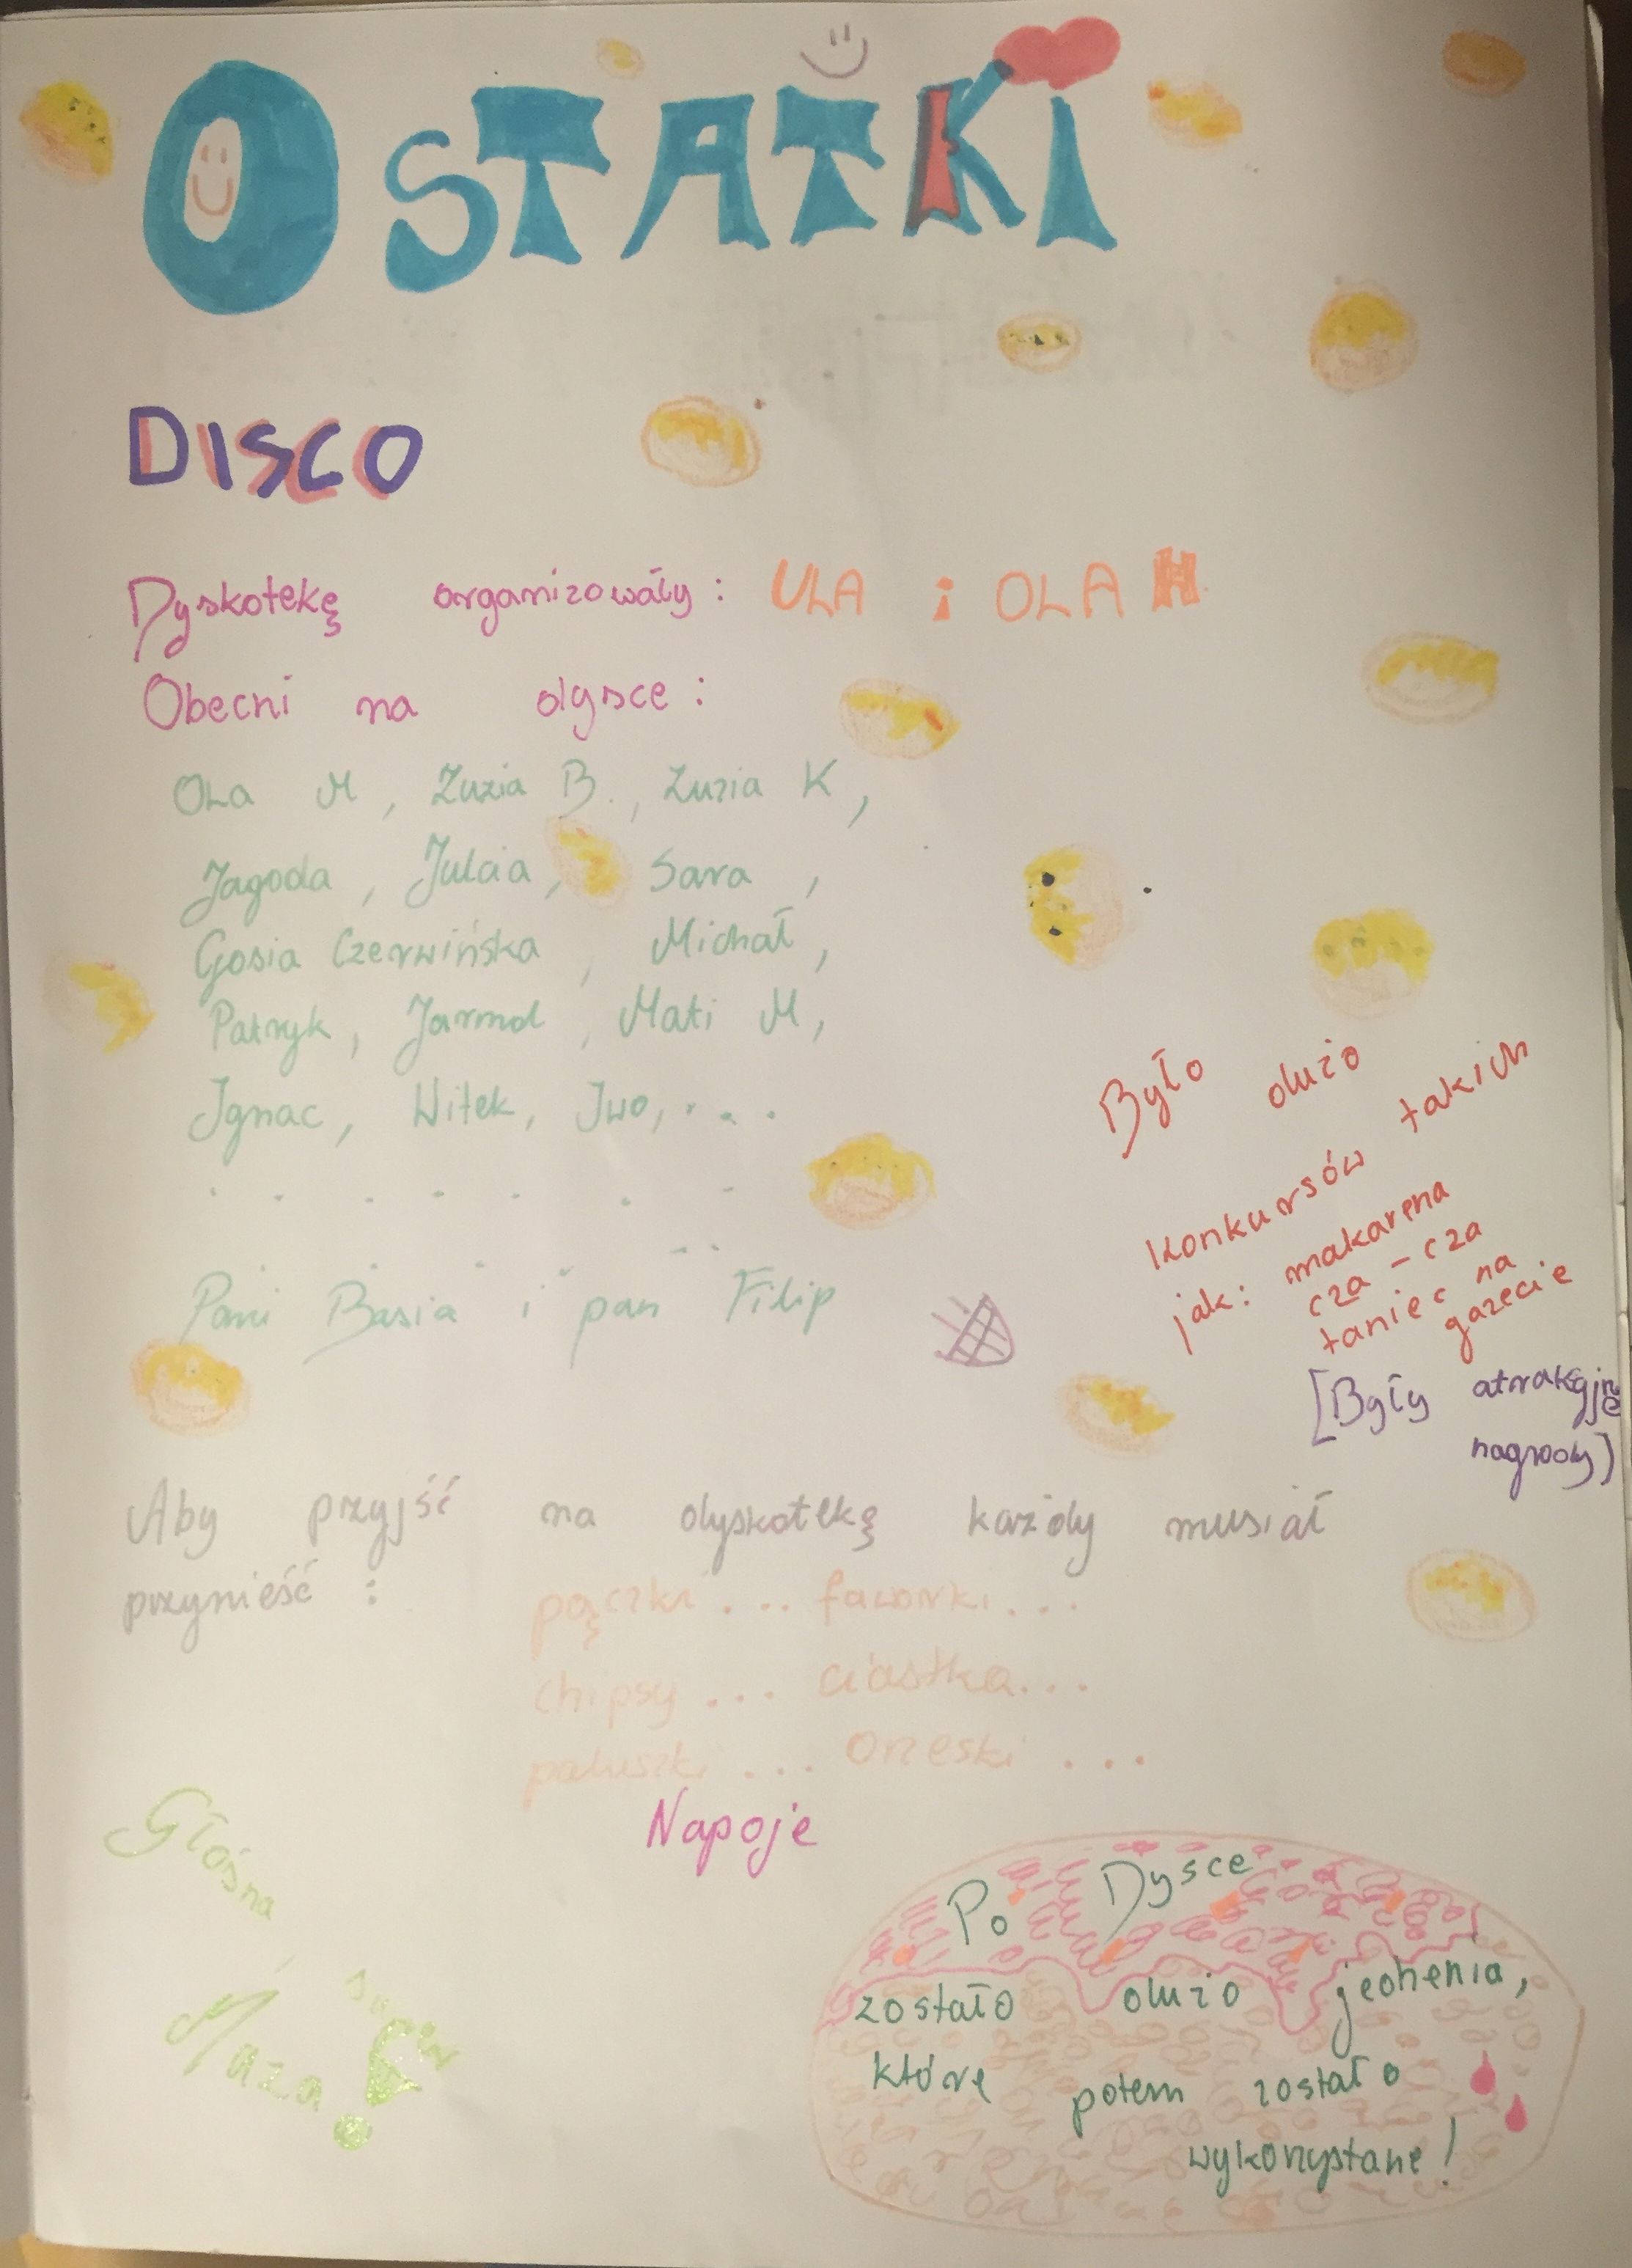 OSTATKI
DISCO
Dyskotekę organizowały: ULA i OLA H.
Obecni na dysce:
OLA M, Zuzia B., Zuzia K,
Jagoda, Julcia, Sara,
Gosia Czerwińska, Michał,
Patryk, Jarmol, Mati M,
Ignac, Witek, Iwo, . . .
. . . . . . .
Pani Basia i pan Filip
Było dużo
konkursów takich
jak: makarena
cza - cza
taniec na
gazecie
[Były atrakcyjne
nagrody)
Aby przyjść na dyskotekę każdy musiał
przynieść : pączki ... faworki ...
chipsy ... ciastka...
paluszki ... orzeski ...
Napoje
Głośna
Po Dysce
zostało dużo jedzenia,
które potem zostało
wykorzystane!